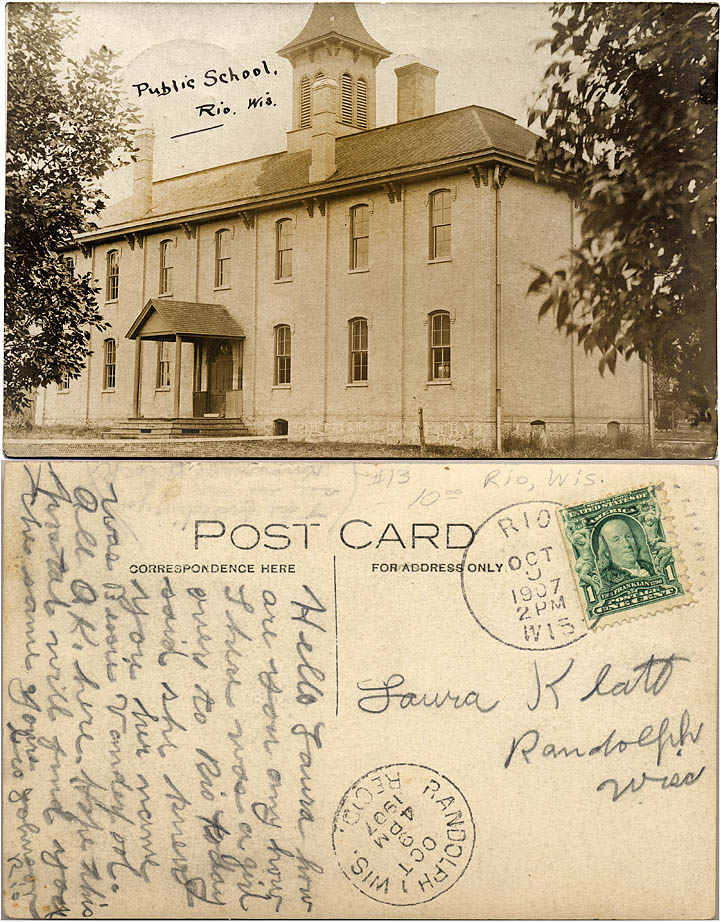 Public School,
Rio. Wis.
#13
10.00
Rio, Wis.
POST CARD
CORRESPONDENCE HERE
FOR ADDRESS ONLY
RIO
OCT
1907
2 PM
WIS
UNITED STATES OF
AMERICA
FRANKLIN
POSTAGE
ONE CENT
1
1
Laura Klatt
Randolph
Wisc
RANDOLPH, WIS.
OCT
4 PM
1907
REC'D.
Hello Laura how
are you any how
I hud was a girl
over to Rio today
said she knew
you her name
was Vanderpool.
All O.K. here. Hope this
postal will find you
the same Yours
Rio